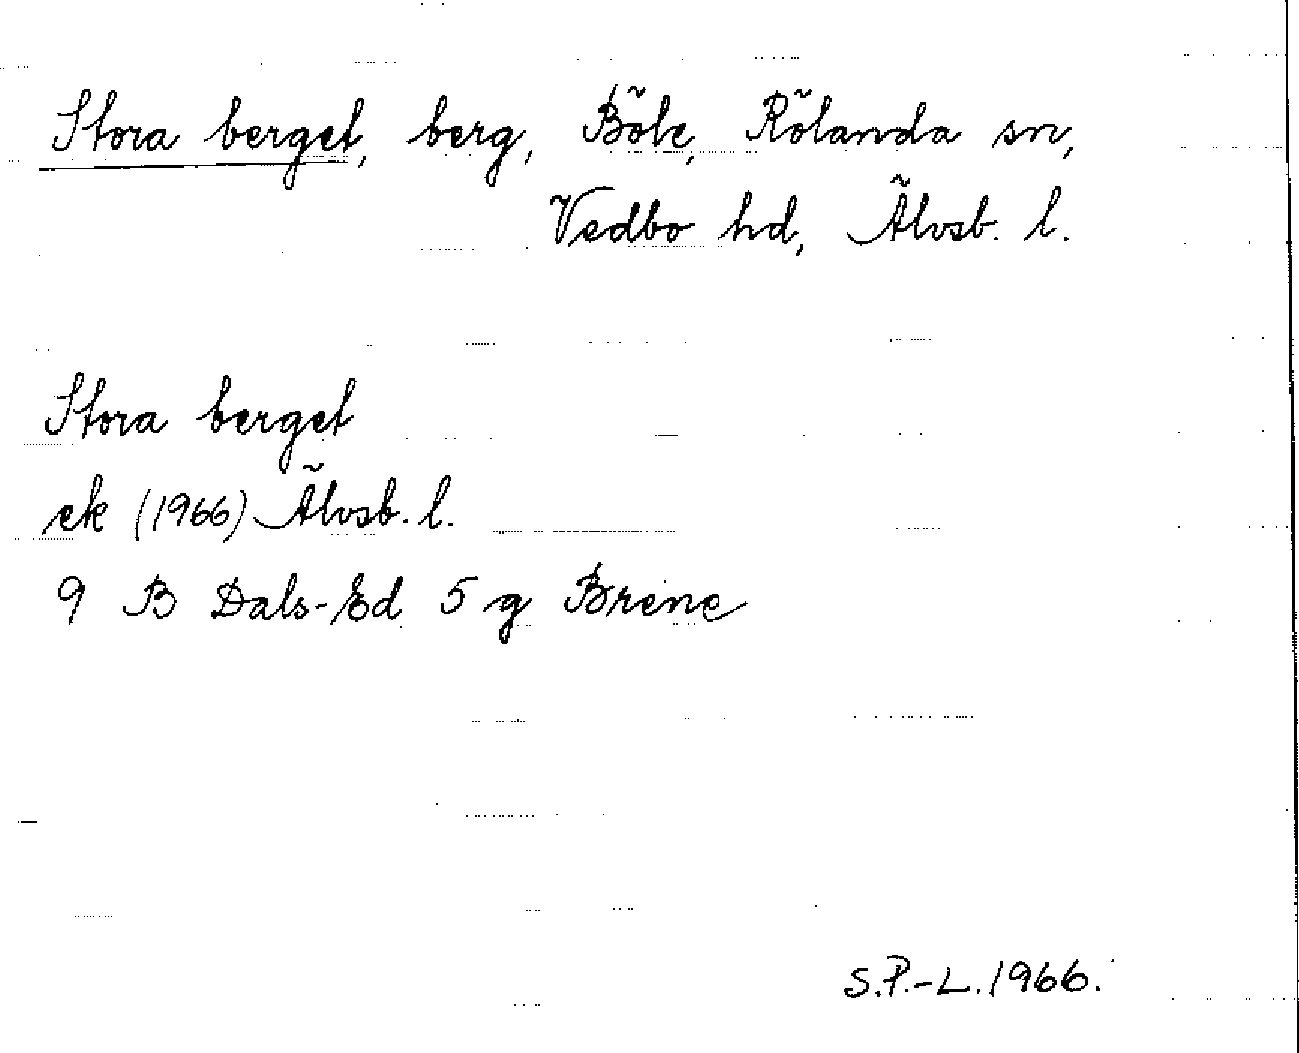 Stora berget, berg, Böle, Rölanda sn,
Vedbo hd, Älvsb. l.
Stora berget
ek (1966) Älvsb. l.
9 B Dals-Ed 5 g Brene
S.P.-L. 1966.